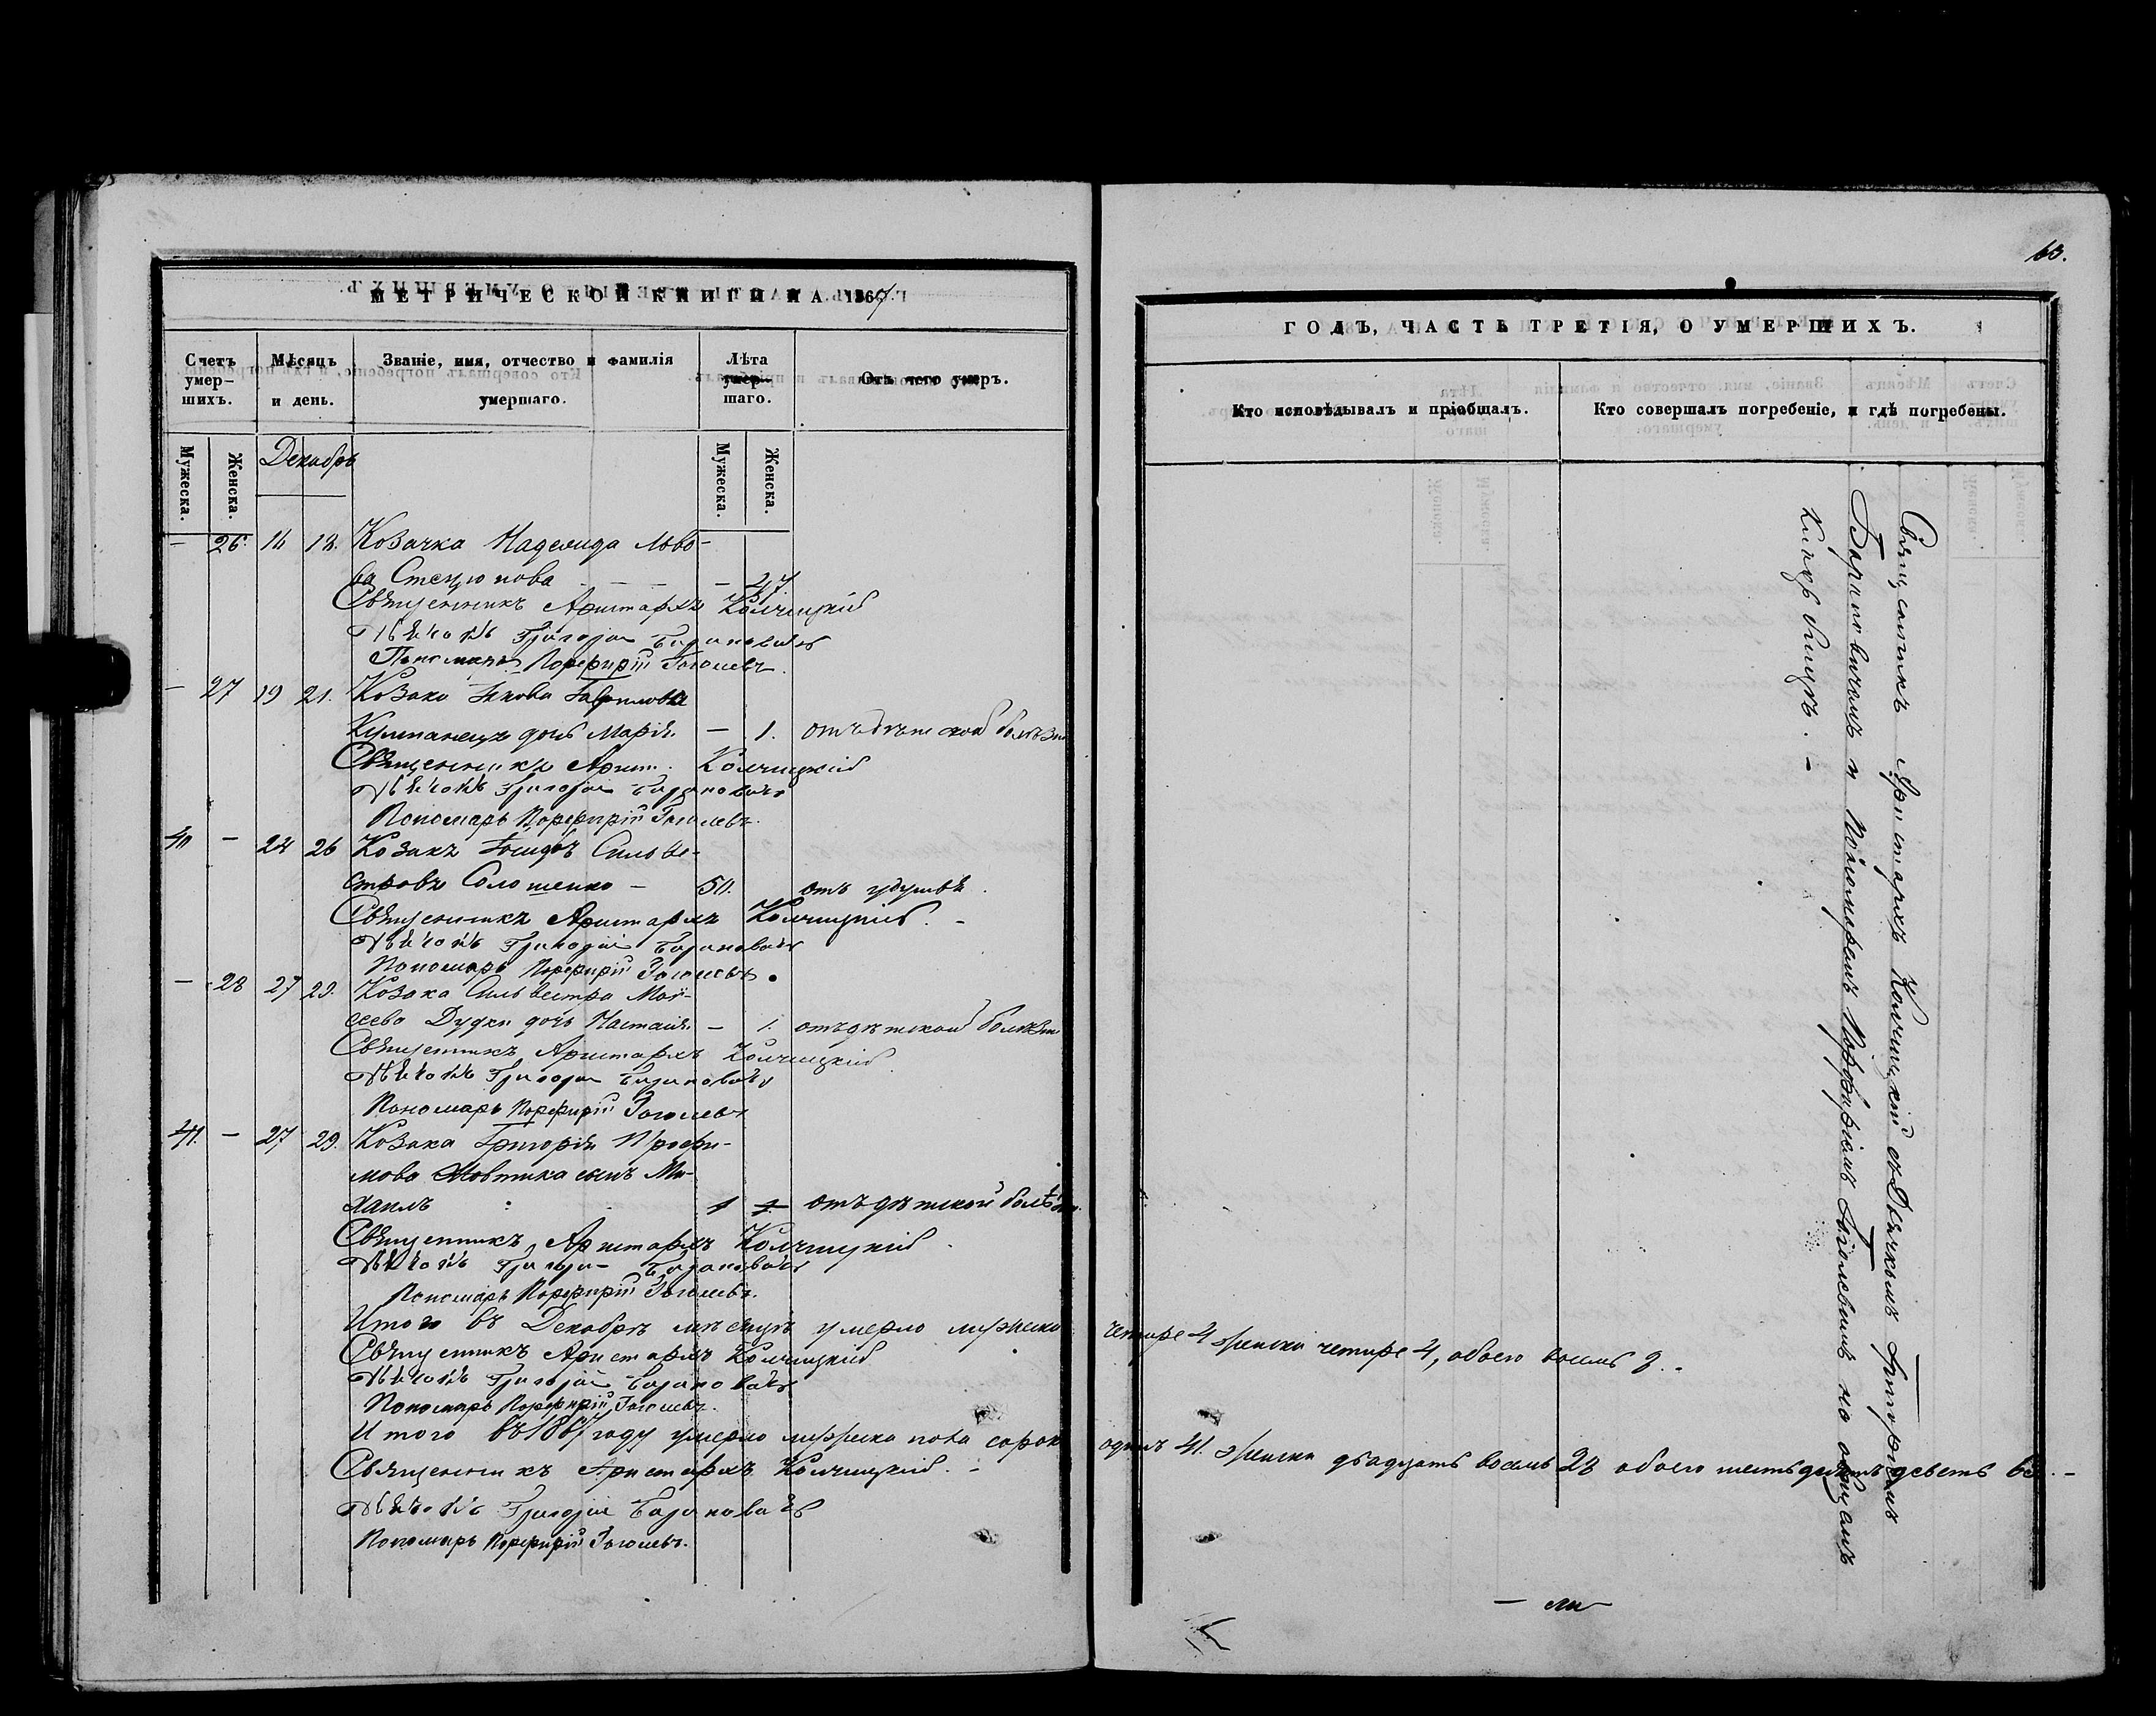 МЕТРИЧЕСКОЙ КНИГИ НА 1867
Счетъ умер-
шихъ.
Мѣсяцъ
и день.
Званіе, имя, отчество и фамилія
умершаго.
Лѣта
умер-
шаго.
Отъ чего умеръ.
Мужеска.
Женска.
Декабрь
Мужеска.
Женска.
— 26. 16 18. Козачка Надежда Льво-
ва Стецюкова — — — — 27
Священникъ Аристархъ Колчицкій
Дьячокъ Григорій Барановичъ
Пономарь Порфирій Гоголевъ.
— 27 19 21. Козака Якова Гаврилова
Кулманець дочь Марія — 1. отъ дѣтской болѣзни
Священникъ Арист. Колчицкій
Дьячокъ Григорій Барановичъ
Пономарь Порфирій Гоголевъ.
40 — 24 26 Козакъ Сильве-
стровъ Солошенко — 50. отъ удушья.
Священникъ Аристархъ Колчицкій. —
Дьячокъ Григорій Барановичъ
Пономарь Порфирій Гоголевъ.
— 28 27 29. Козака Сильвестра Мои-
сеева Дудки дочь Настасія — 1. отъ дѣтской болѣзни
Священникъ Аристархъ Колчицкій
Дьячокъ Григорій Барановичъ
Пономарь Порфирій Гоголевъ
41. — 27 29. Козака Григорія Трофи-
мова Жовтика сынъ Ми-
хаилъ 1 отъ дѣтской болѣзни.
Священникъ Аристархъ Колчицкій.
Дьячокъ Григорій Барановичъ
Пономарь Порфирій Гоголевъ.
Итого въ Декабрѣ мѣсяцѣ умерло мужеска четыре 4 женска четыре 4, обоего восемь 8. —
Священникъ Аристархъ Колчицкій
Дьячокъ Григорій Барановичъ
Пономарь Порфирій Гоголевъ.
Итого въ 1867 году умерло мужеска пола сорок одинъ 41. женска двадцать восемь 28 обоего шестьдесятъ девять 69. —
Священникъ Аристархъ Колчицкій. —
Дьячокъ Григорій Барановичъ
Пономарь Порфирій Гоголевъ.
63.
ГОДЪ, ЧАСТЬ ТРЕТІЯ, О УМЕРШИХЪ.
Кто исповѣдывалъ и пріобщалъ.
Кто совершалъ погребеніе, и гдѣ погребены.
Священникъ Аристархъ Колчицкій съ Дьячкомъ Григоріемъ
Барановичемъ и Пономаремъ Порфиріемъ Гоголевымъ на общемъ
Кладбищѣ. —